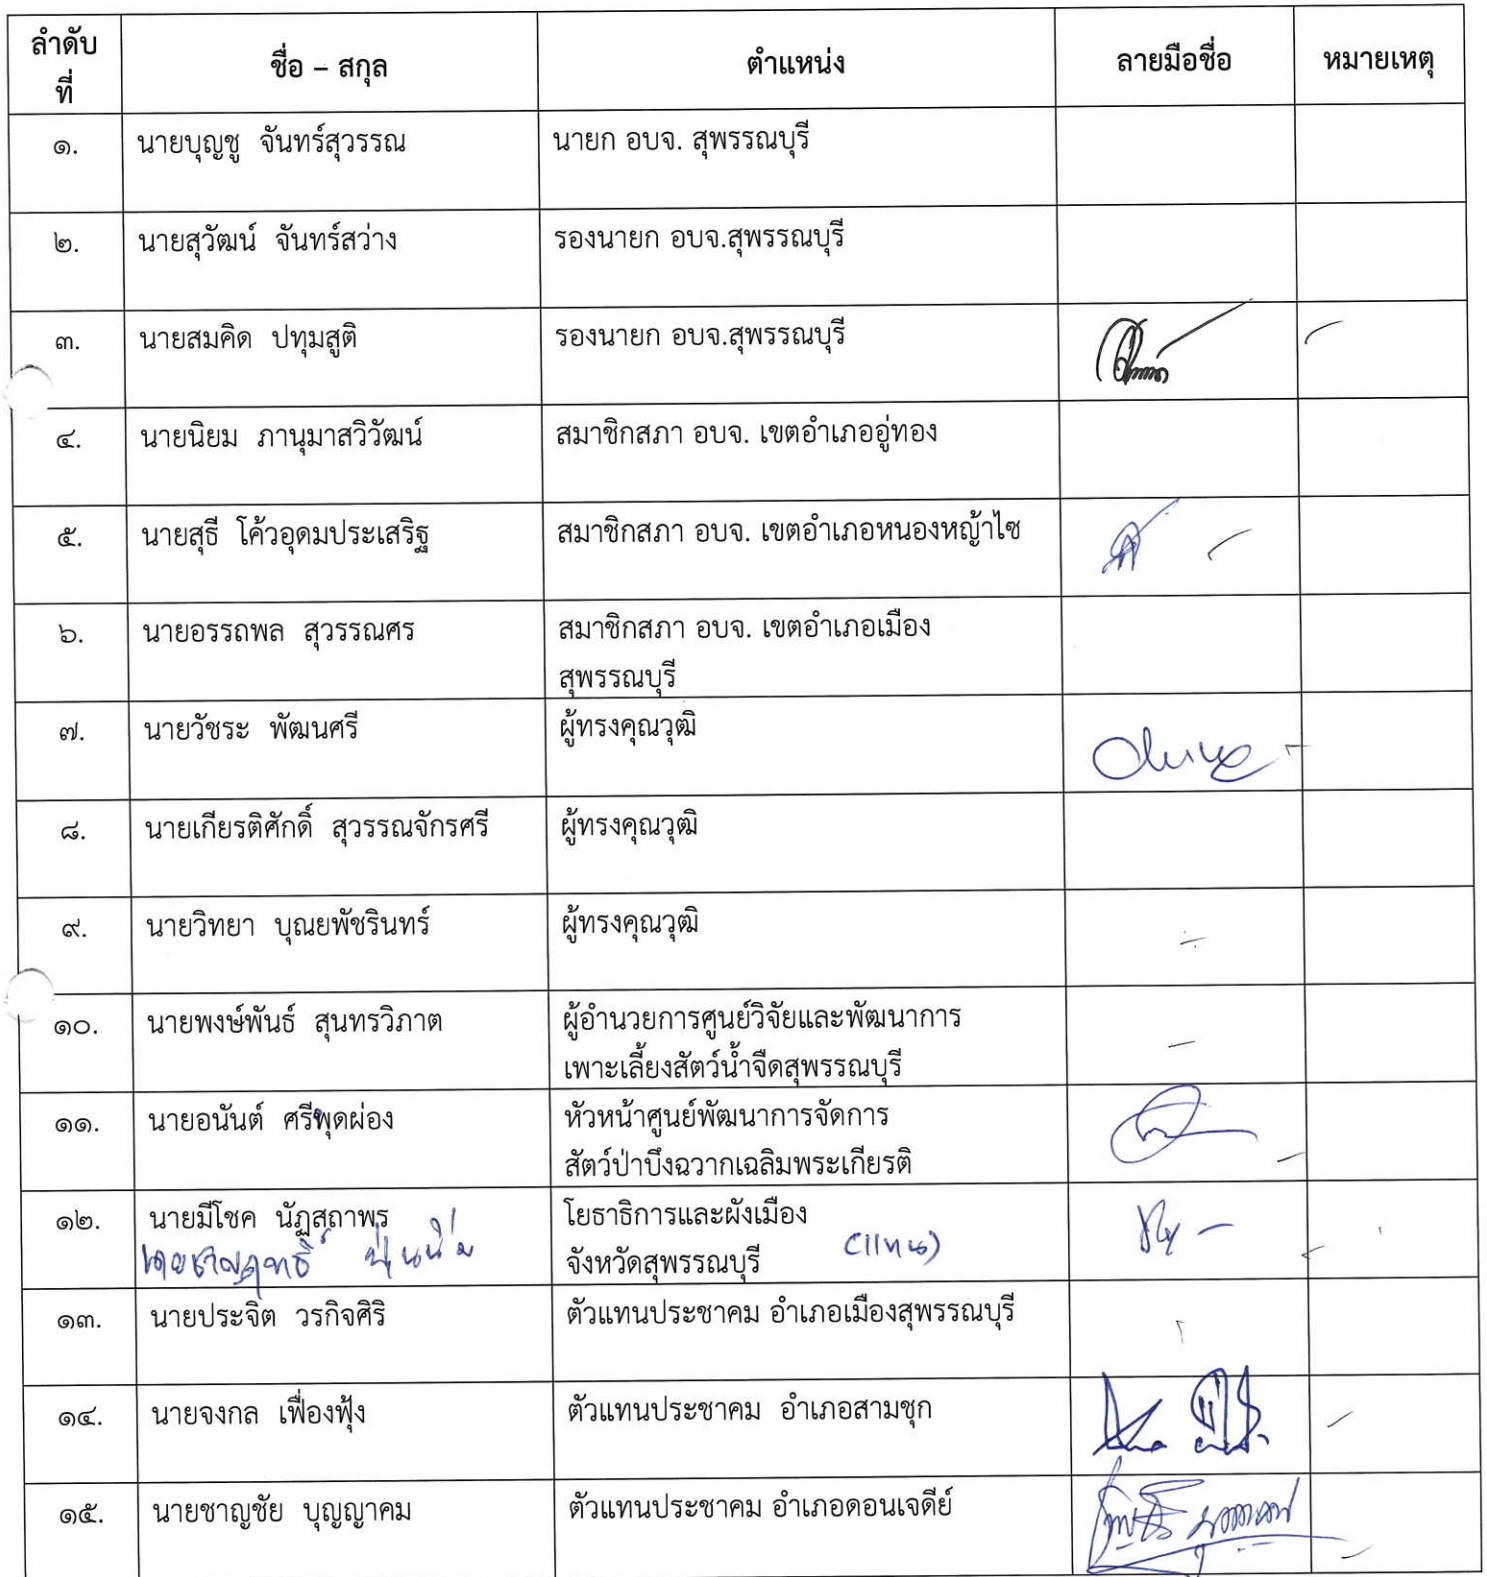 ลำดับ
ที่
ชื่อ – สกุล
ตำแหน่ง
ลายมือชื่อ
หมายเหตุ
๑. นายบุญชู จันทร์สุวรรณ นายก อบจ. สุพรรณบุรี
๒. นายสุวัฒน์ จันทร์สว่าง รองนายก อบจ.สุพรรณบุรี
๓. นายสมคิด ปทุมสูติ รองนายก อบจ.สุพรรณบุรี
๔. นายนิยม ภานุมาสวิวัฒน์ สมาชิกสภา อบจ. เขตอำเภออู่ทอง
๕. นายสุธี โค้วอุดมประเสริฐ สมาชิกสภา อบจ. เขตอำเภอหนองหญ้าไซ
๖. นายอรรถพล สุวรรณศร สมาชิกสภา อบจ. เขตอำเภอเมือง
สุพรรณบุรี
๗. นายวัชระ พัฒนศรี ผู้ทรงคุณวุฒิ
๘. นายเกียรติศักดิ์ สุวรรณจักรศรี ผู้ทรงคุณวุฒิ
๙. นายวิทยา บุณยพัชรินทร์ ผู้ทรงคุณวุฒิ
๑๐. นายพงษ์พันธ์ สุนทรวิภาต ผู้อำนวยการศูนย์วิจัยและพัฒนาการ
เพาะเลี้ยงสัตว์น้ำจืดสุพรรณบุรี
๑๑. นายอนันต์ ศรีพุดผ่อง หัวหน้าศูนย์พัฒนาการจัดการ
สัตว์ป่าบึงฉวากเฉลิมพระเกียรติ
๑๒. นายมีโชค นัฏสถาพร โยธาธิการและผังเมือง
จังหวัดสุพรรณบุรี (แทน)
๑๓. นายประจิต วรกิจศิริ ตัวแทนประชาคม อำเภอเมืองสุพรรณบุรี
๑๔. นายจงกล เฟื่องฟุ้ง ตัวแทนประชาคม อำเภอสามชุก
๑๕. นายชาญชัย บุญญาคม ตัวแทนประชาคม อำเภอดอนเจดีย์